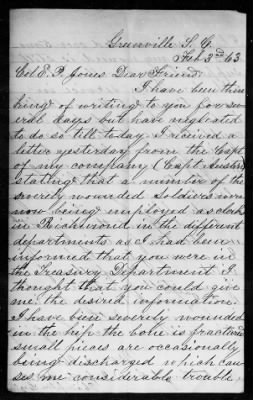 Greenville S. C.
Feb 3rd 63
Col E. P. Jones Dear Friend
I have been thin
king of writing to you for sev
eral days but have neglected
to do so till today I received a
letter yesterday from the Capt
of my company (Capt
stating that a number of the
severely wounded Soldiers were
now being employed as clerks
in Richmond in the different
departments as I had been
informed that you were in
the Treasury Department I
thought that you could give
me the desired information
I have been severely wounded
in the hip the bone is fractured
small pieces are occasionally
being discharged which cau
ses me considerable trouble